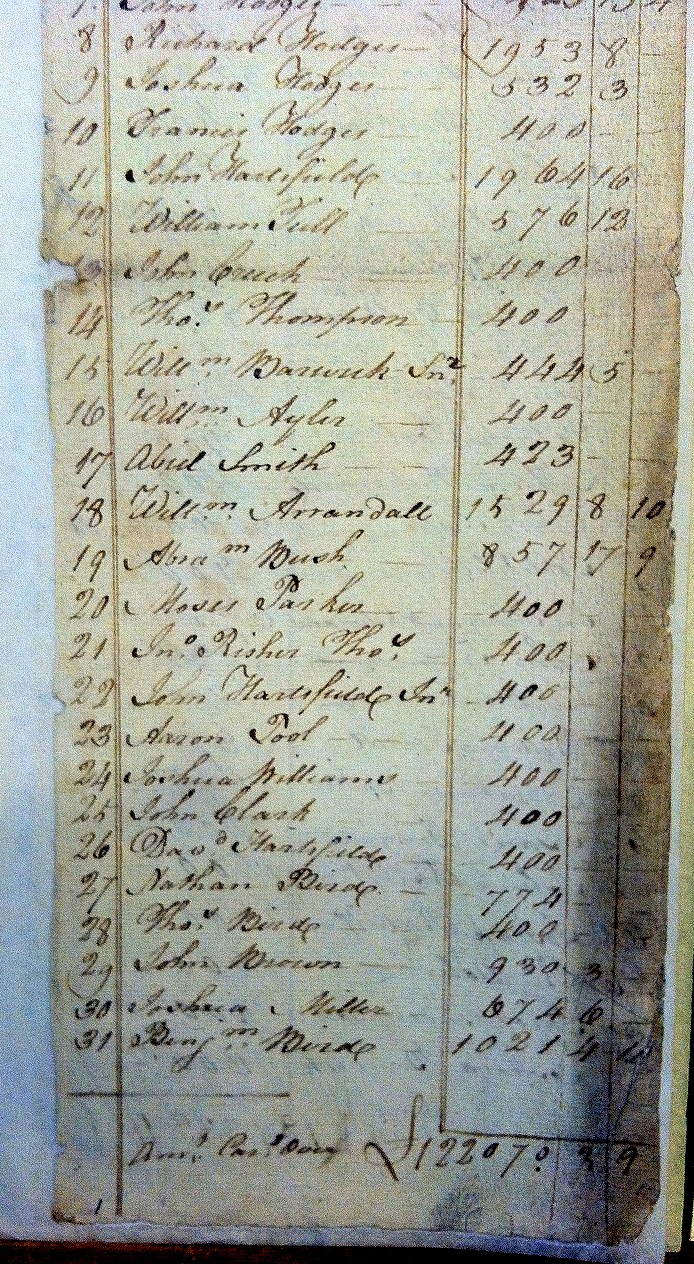 John Hodges
8 Richard Hodges 1953 8
9 Joshua Hodges 532 3
10 Francis Hodges 400
11 John Hartsfield 1964 16
12 William Tull 576 12
13 John 400
14 Thos. Thompson 400
15 Willm. Warwick Snr. 444 5
16 Willm. Ayler 400
17 Abid Smith 423
18 Willm. Arrandall 1529 8 10
19 Abram Bush 857 17 9
20 Moses Parker 400
21 Jno. Risher Thos. 400
22 John Hartsfield Jnr 400
23 Aaron Tool 400
24 Joshua Williams 400
25 John Clark 400
26 Davd Hartsfield 400
27 Nathan Bird 774
28 Thos. Bird 400
29 John Brown 930 3
30 Joshua Miller 674 6
31 Benjm Bird 1021 4 10
Amt. Card. Over £12207. 3 9